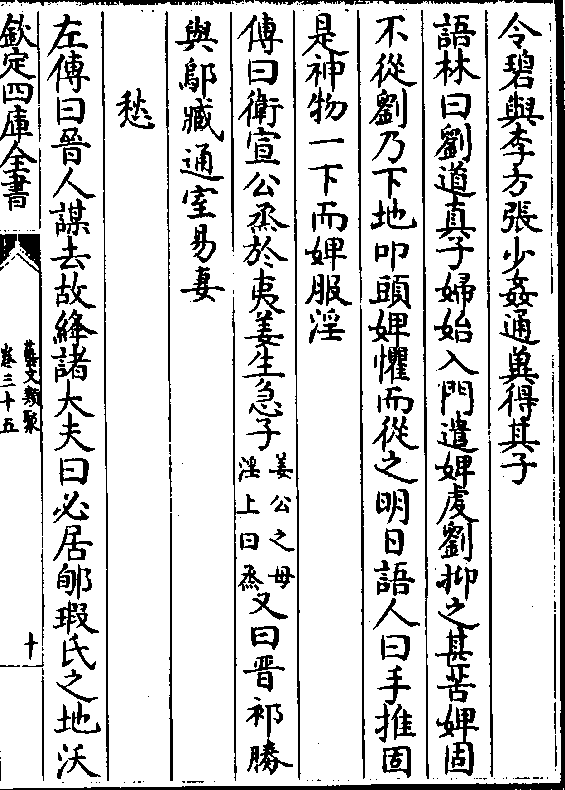 令碧與李方張少姦通兾得其子
語林曰劉道真子婦始入門遣婢䖍劉抑之甚苦婢固
不從劉乃下地叩頭婢懼而從之明日語人曰手推固
是神物一下而婢服淫
傳曰衛宣公烝於夷姜生急子姜公之母淫上曰烝又曰晋祁勝
與鄔臧通室易妻
愁
左傳曰晉人謀去故絳諸大夫曰必居郇瑕氏之地沃
欽定四庫全書
藝文類聚
卷三十五
十